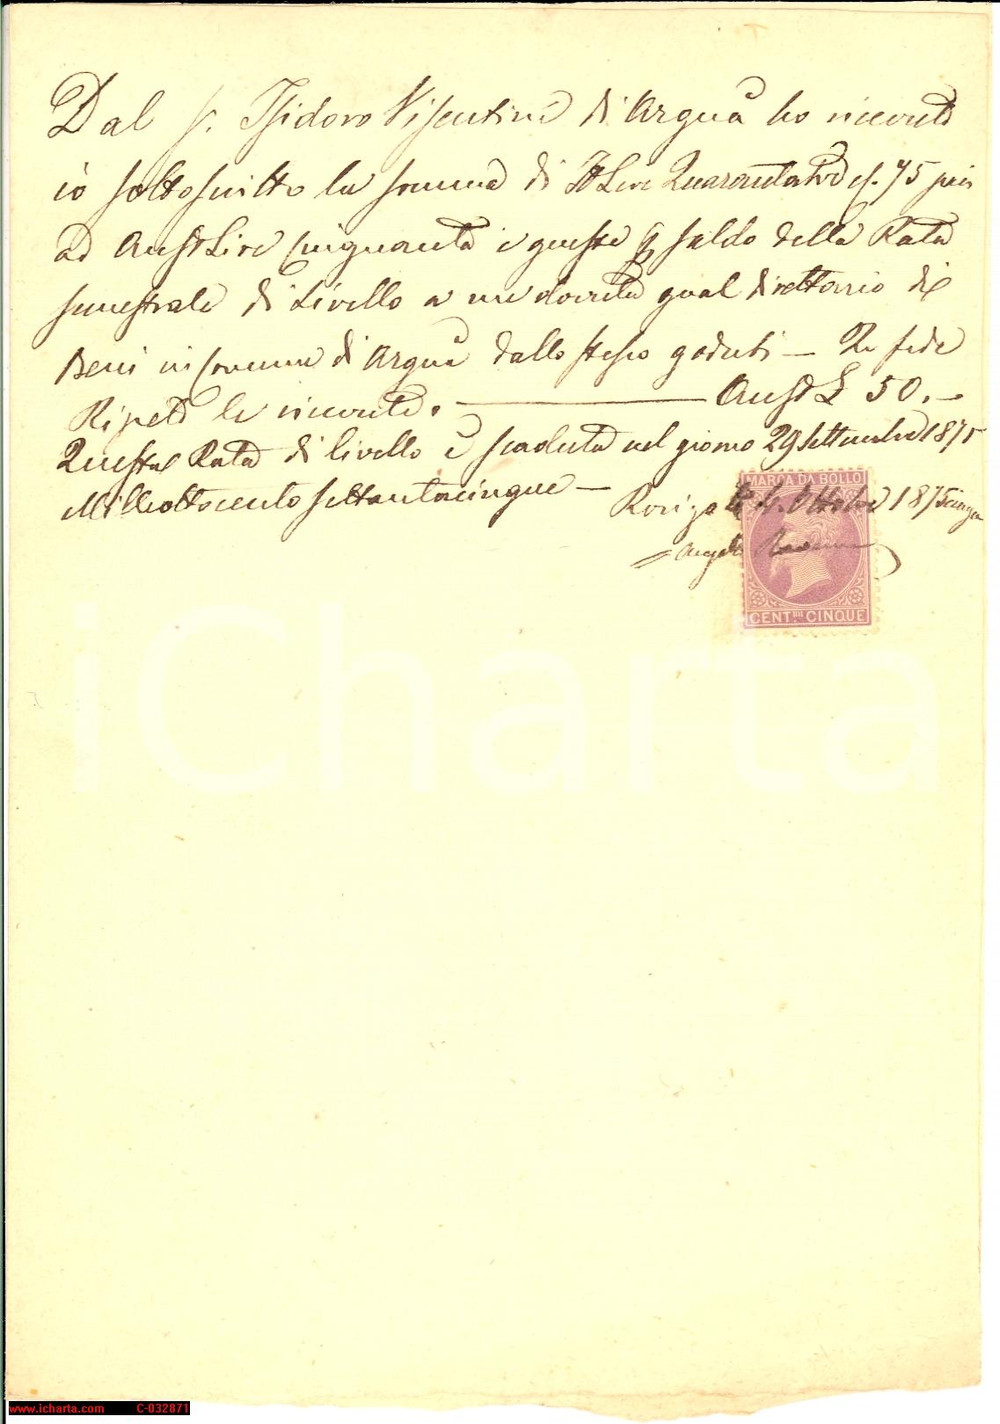 Dal S. Isidoro Visentini di Arquà ho ricevuto
io sottoscritto la somma di It Lire Quarantatre c. 75 pari
ad Aust Lire Cinquanta e queste per saldo della Rata
semestrale di Livello a me dovuta qual direttario di
Beni in Comune di Arquà dallo stesso goduti — In fede
Ripeto le ricevute. — Aust £ 50. —
Questa Rata di livello è scaduta nel giorno 29 Settembre 1875
Milleottocento settantacinque —
Rovigo li 4. Ottobre 1875
Angelo
MARCA DA BOLLO
CENT.MI CINQUE
iCharta
www.icharta.com C-032871